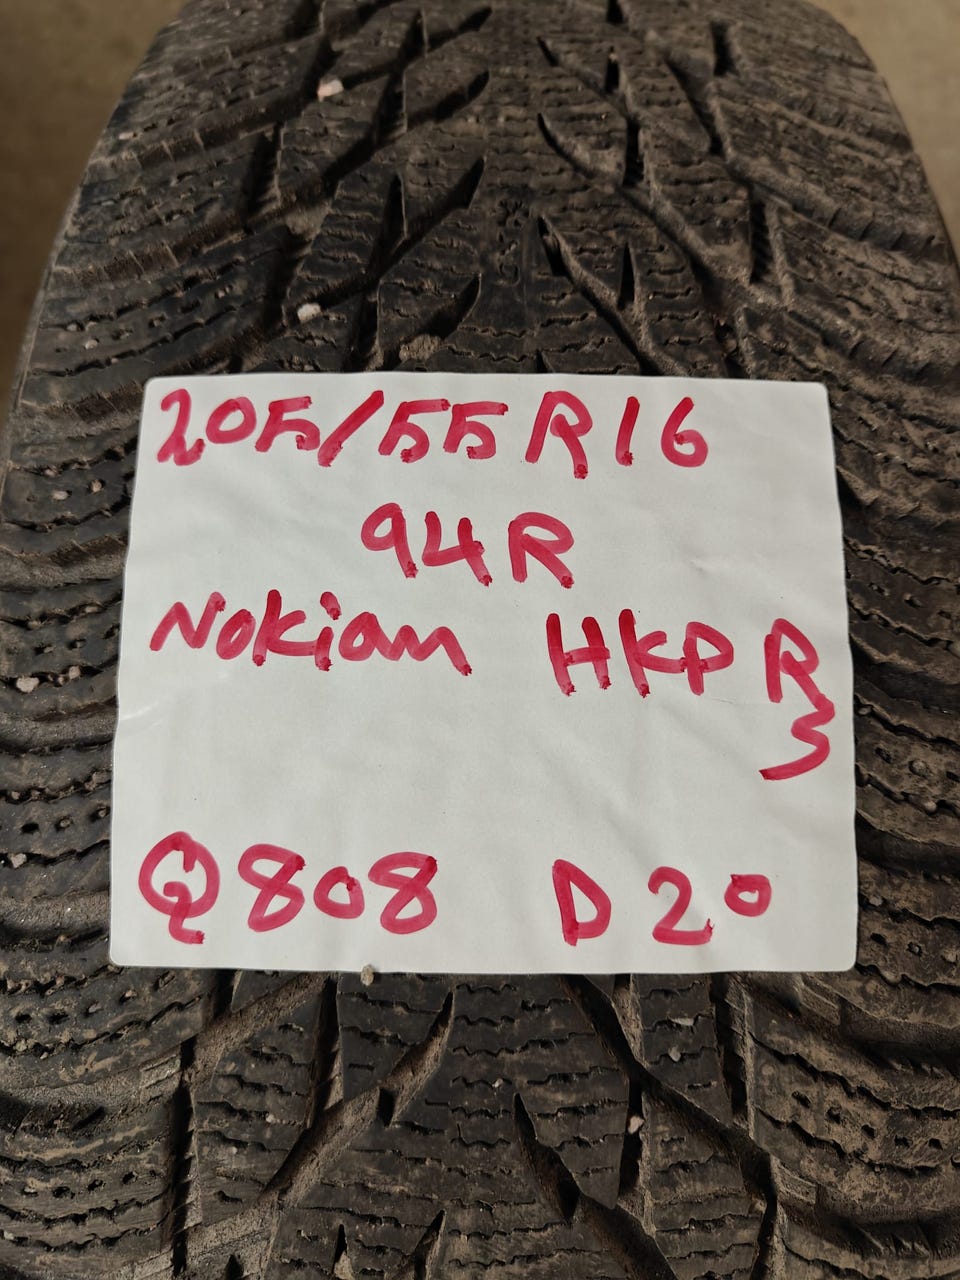 205/55R16
94R
Nokian HKP R
3
Q808 D20